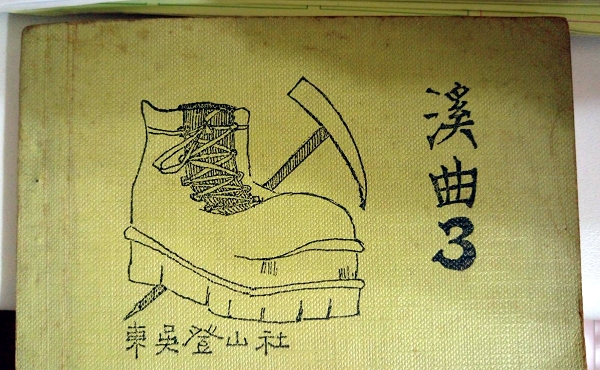 溪曲3
東吳登山社